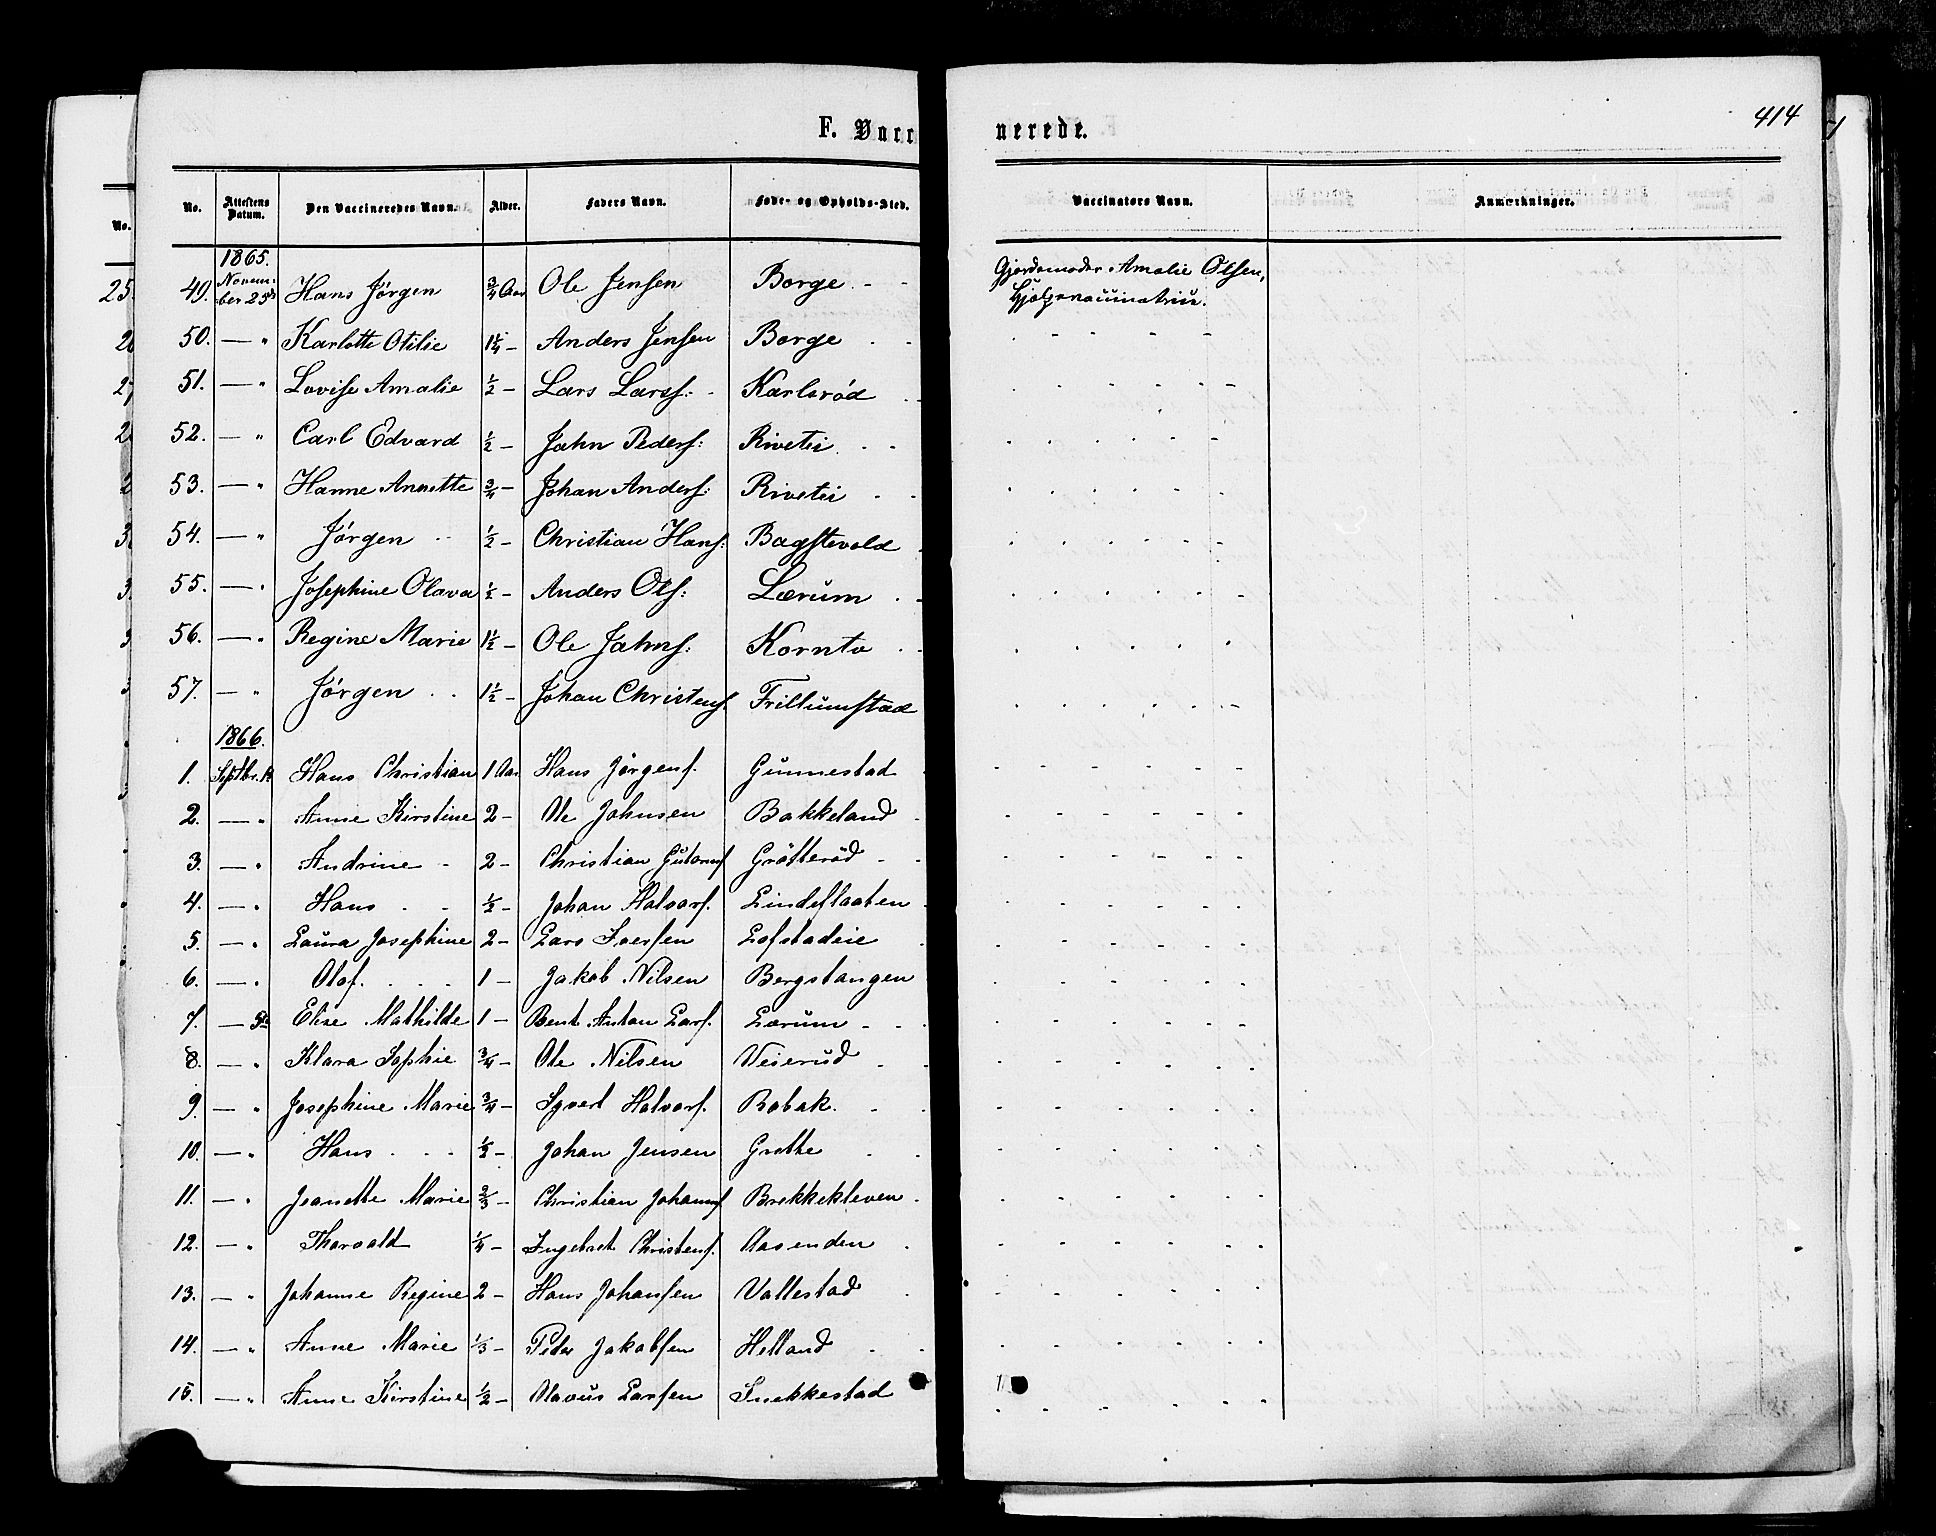 414
F. Vaccinerede.
No. Attestens Datum. Den Vaccineredes Navn. Alder. Faders Navn. Føde- og Opholds-Sted. Vaccinators Navn. Anmærkninger.
1865.
49. November 25de Hans Jörgen 3/4 Aar Ole Jensen Borge - - Gjordemoder Amalie Olsen, Hjælpevaccinatrice.
50. — " Karlotte Otilie 1 1/4 - Anders Jensen Borge - -
51. — " Lovise Amalie 1/2 - Lars Larss: - Karlsröd - -
52. — " Carl Edvard 1/2 - John Peders: Rivetei - -
53. — " Hanne Annette 3/4 - Johan Anders: Rivetei - -
54. — " Jörgen - - 1/2 - Christian Hans: Bagstevold -
55. — " Josephine Olava 1/2 - Anders Ols: Lærum - -
56. — " Regine Marie 1 1/2 - Ole Johns: Kornto - -
57. — " Jörgen - - 1 1/2 - Johan Christens. Trillumstad
1866.
1. Septbr. Hans Christian 1 Aar Hans Jörgens. Gunnestad
2. — " Anne Kirstine 2 - Ole Johnsen Bakkeland -
3. — " Andrine - 2 - Christian Gutorms. Grötteröd - -
4. — " Hans - - 1/2 - Johan Halvors. Lindeflaaten -
5. — " Laura Josephine 2 - Lars Iversen Lofstadeie -
6. — " Olaf - - - 1 - Jakob Nilsen Bergstangen
7. — Elise Mathilde 1 - Bent Anton Lars. Lærum - -
8. — " Klara Sophie 3/4 - Ole Nilsen Veierud - -
9. — " Josephine Marie 3/4 - Syvert Halvors. Robak - -
10. — " Hans - - - 1/2 - Johan Jensen Grette - -
11. — " Jeanette Marie 2/3 - Christian Johanns. Brekkekleven -
12. — " Thorvald 1/4 - Ingebret Christens. Aasenden -
13. — " Johanne Regine 2 - Hans Johansen Vallestad -
14. — " Anne Marie 1/3 - Peder Jakobsen Helland - -
15. — " Anne Kirstine 1/2 - Olavus Larsen Snekkestad